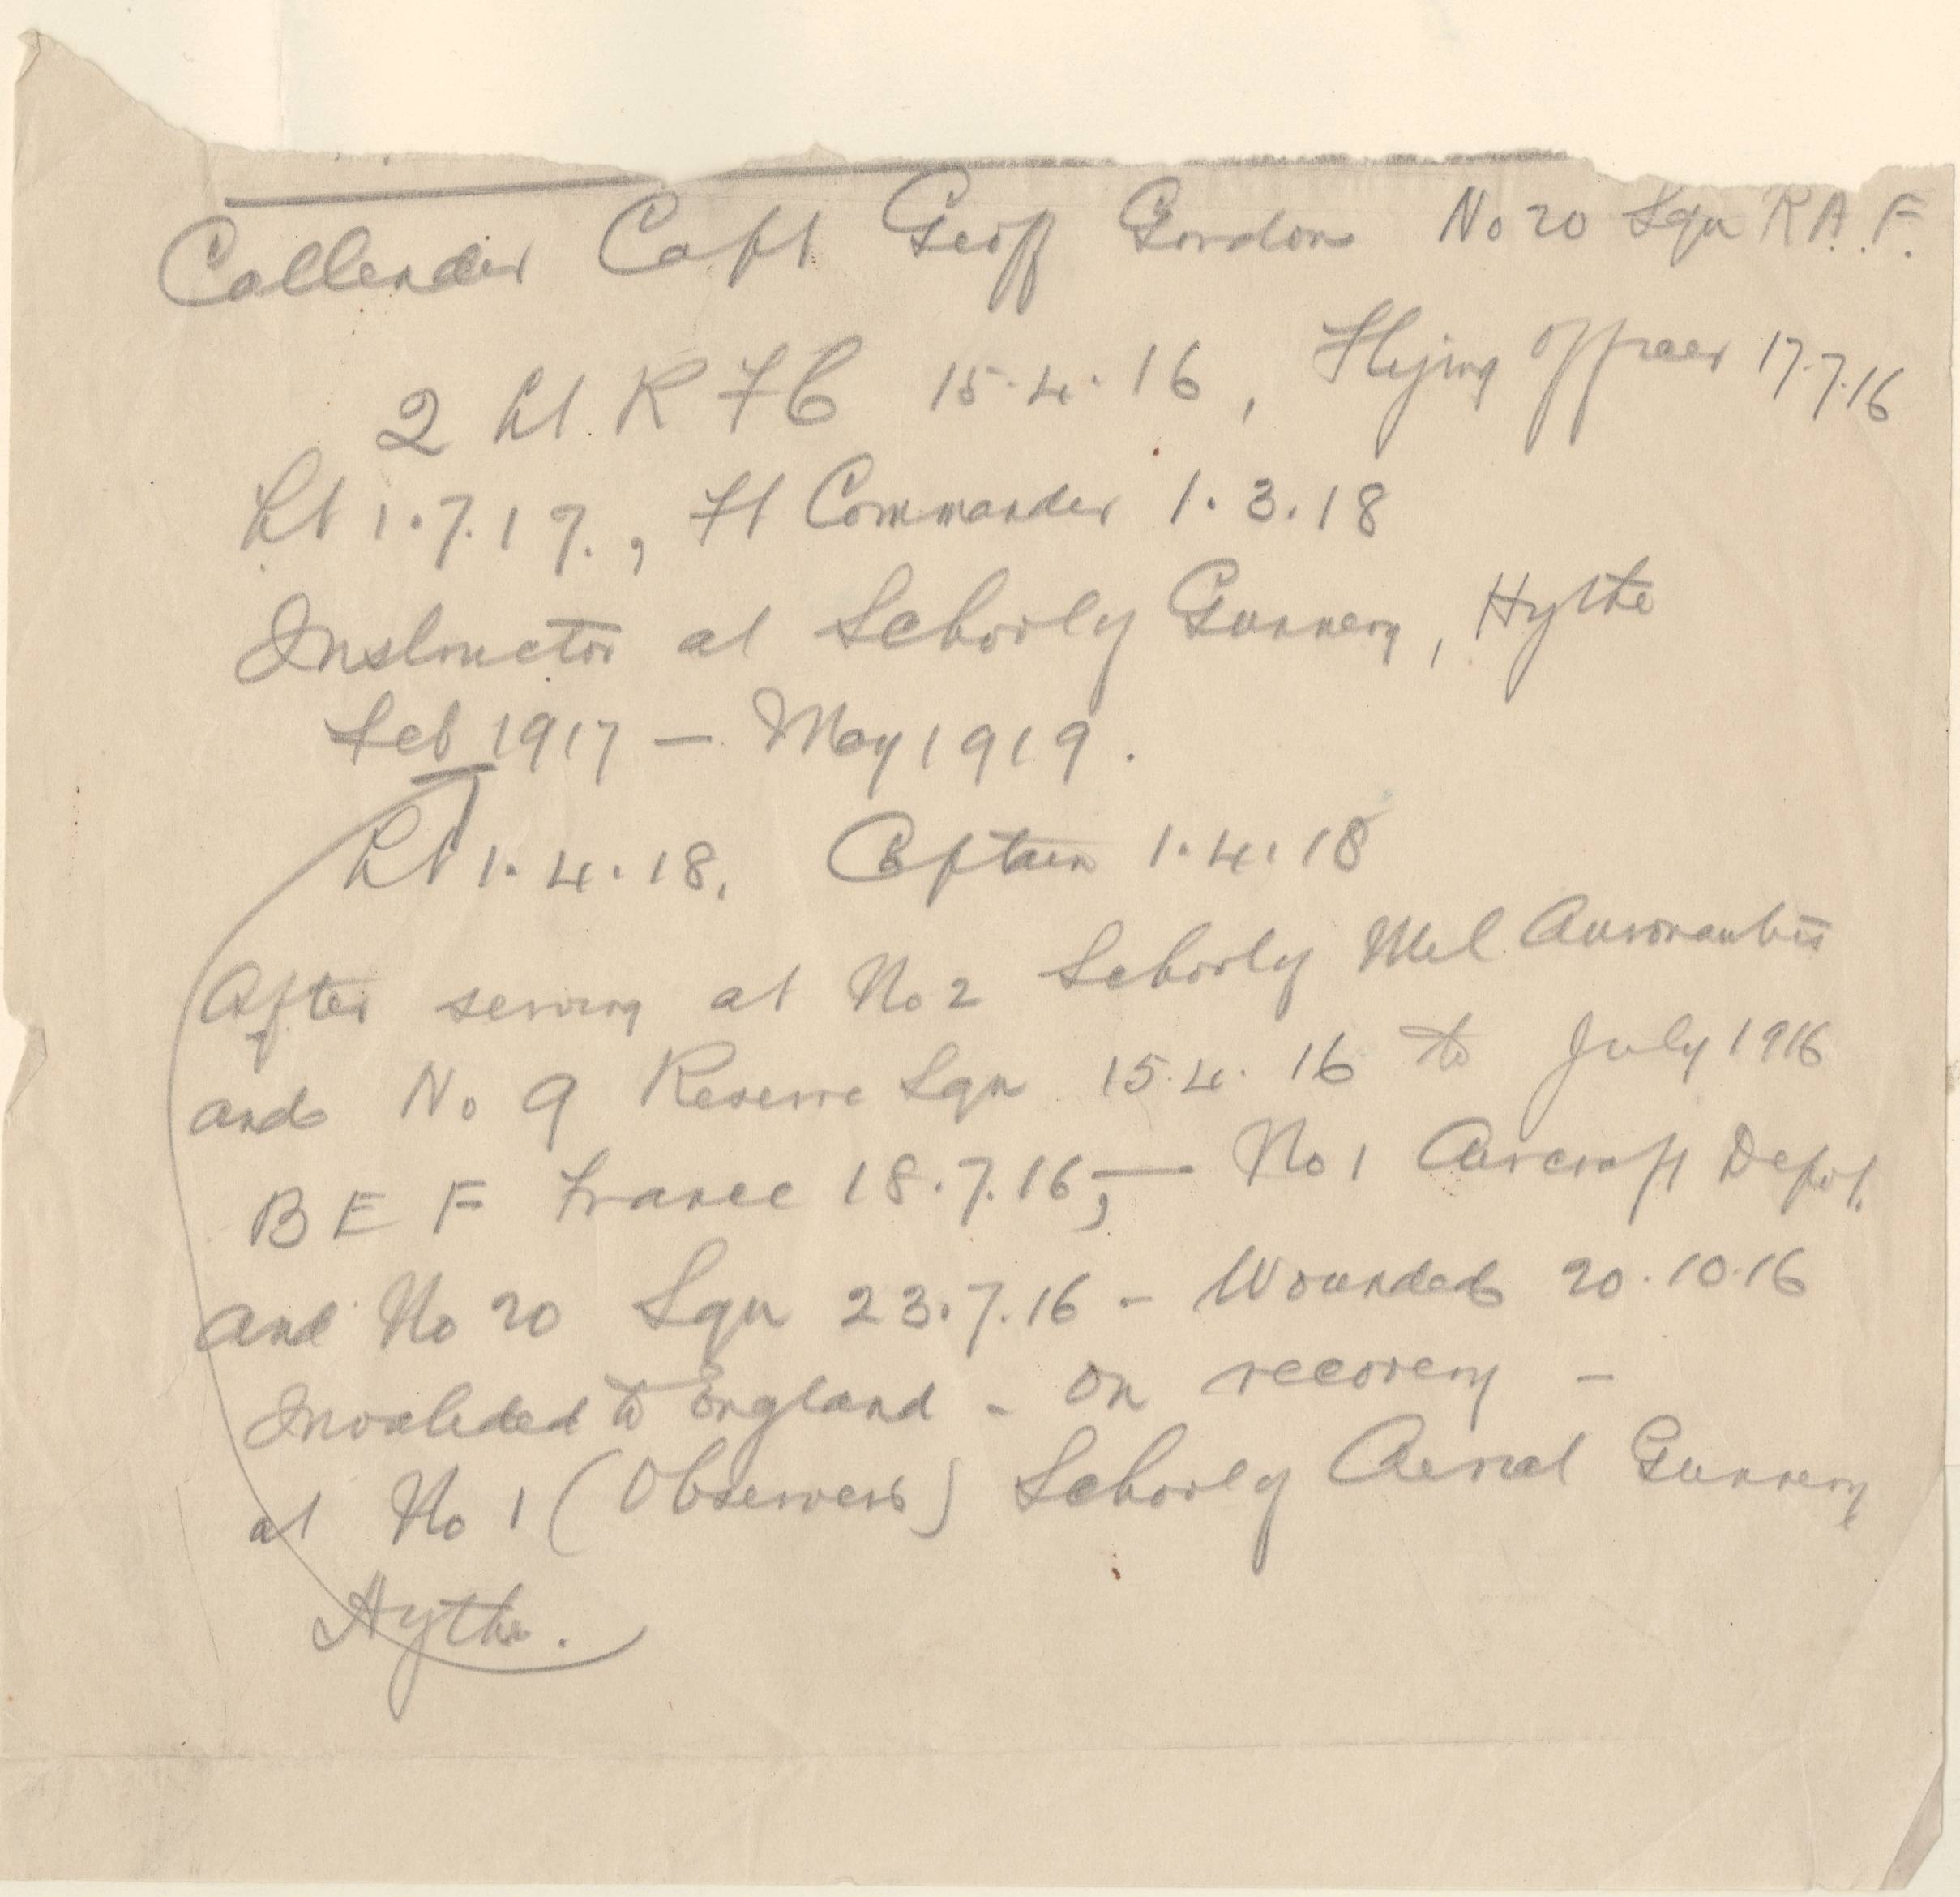 Callender Capt Geoff Gordon No 20 Sqn R.A.F.
2 Lt. R F C 15.4.16, Flying Officer 17.7.16
Lt 1.7.17., Fl Commander 1.3.18
Instructor at School of Gunnery, Hythe
Feb 1917 — May 1919.
Lt 1.4.18. Captain 1.4.18
After serving at No 2 School of Mil Aeronautics
and No 9 Reserve Sqn 15.4.16 to July 1916
B E F France 18.7.16, — No 1 Aircraft Depot.
and No 20 Sqn 23.7.16 - Wounded 20.10.16
Invalided to England - on recovery -
at No 1 (Observers) School of Aerial Gunnery
Hythe.